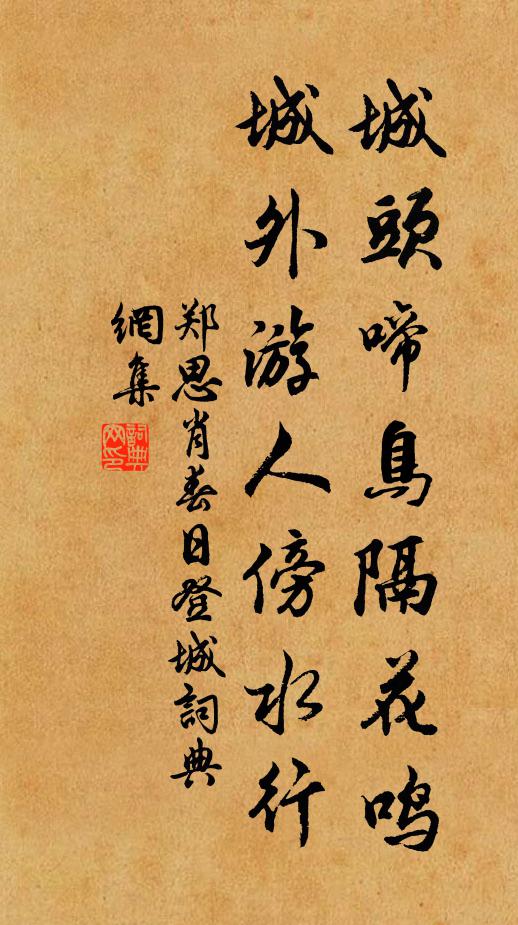 城頭啼鳥隔花鸣
城外游人傍水行
郑思肖春日登城詞典
網集
詞典
网印